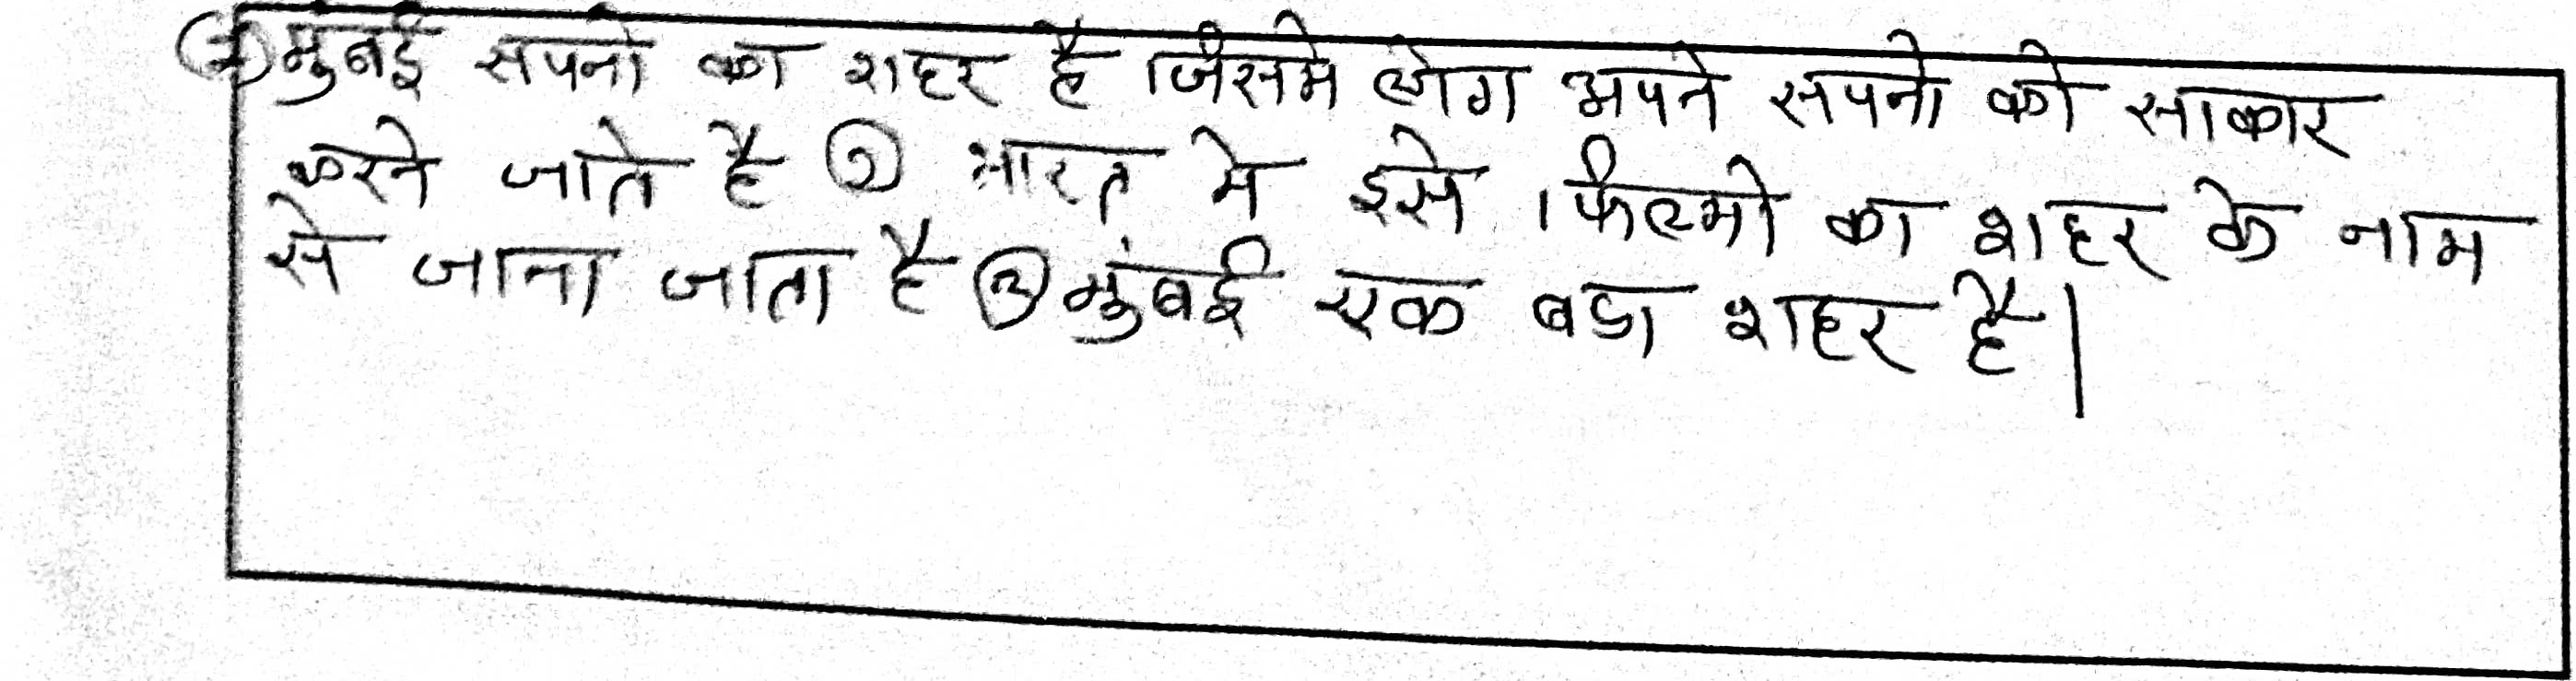 ① मुंबई सपनो का शहर है जिसमे लोग अपने सपनो को साकार
करने जाते है ② भारत मे इसे फिल्मो का शहर के नाम
से जाना जाता है ③ मुंबई एक बडा शहर है।